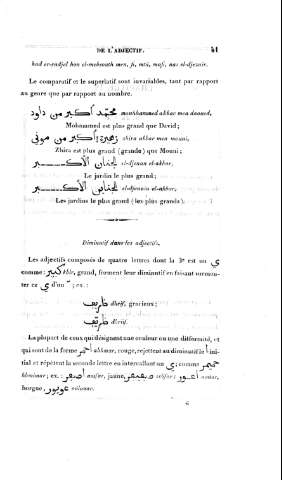 DE L'ADJECTIF. 41
had er-radjel hou el-mohourath men, fi, mtâ, mafi, nas el-djezair.
Le comparatif et le superlatif sont invariables, tant par rapport
au genre que par rapport au nombre.
محمّد أكبر من داود mouhhammed akbar men daoud,
Mohammed est plus grand que David;
زهيرة أكبر من موني zhira akbar men mouni,
Zhira est plus grand (grande) que Mouni;
لجنان الأكبر el-djenan el-akbar,
Le jardin le plus grand;
لجناين الأكبر el-djenain el-akbar,
Les jardins le plus grand (les plus grands).
Diminutif dans les adjectifs.
Les adjectifs composés de quatre lettres dont la 3e est un ي
comme: كبير kbir, grand, forment leur diminutif en faisant surmon-
ter ce ي d'un ّ; ex.:
ظريف dherif, gracieux;
ظريّف
La plupart de ceux qui désignent une couleur ou une difformité, et
qui sont de la forme أحمر ahhmar, rouge, rejettent au diminutif le أ ini-
tial et répètent la seconde lettre en intercallant un ي; comme حميمر
hhmimar; ex.: أصفر assfar, jaune, صفيفر أعور aouar,
borgne, عويور